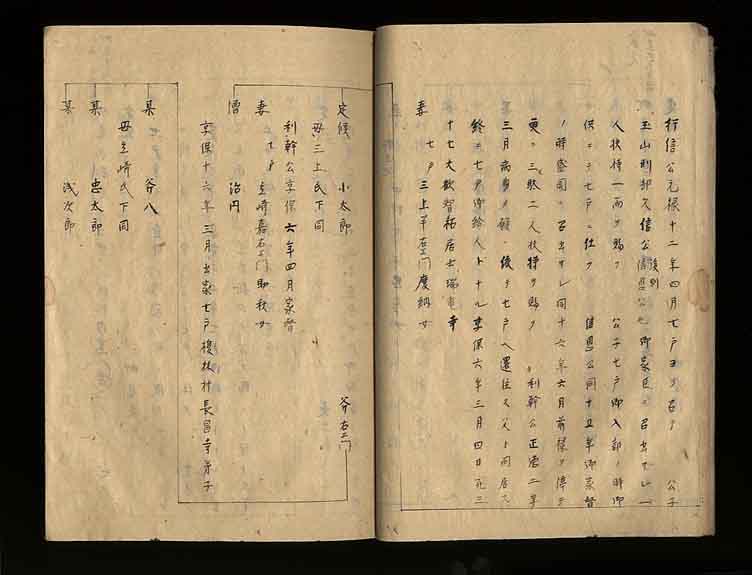 行信公元禄十二年四月七戸ヨリ召ソ 公子
玉山刑部久信公後別信恩公也御家臣ニ召出サレ一
人扶持一両ヲ賜フ 公子七戸御入部ノ時御
供ニテ七戸ニ仕フ 信恩公同十五年御家督
ノ時盛岡ニ召出サレ同十六年六月前禄ヲ停テ
更ニ三駄二人扶持ヲ賜フ 利幹公正徳二年
三月病身ヲ願ヒ後チ七戸ヘ還住ス父ト同居ス
終ニ七戸御給人トナル享保六年三月四日死三
十七大歓智拓居士瑞竜寺
妻 七戸三上平左エ門慶納女
定候 小太郎 斧右エ門
母三上氏下同
利幹公享保六年四月家督
妻 七戸立崎嘉右エ門助秋女
僧 治円
享保十六年三月出家七戸榎林村長昌寺弟子
某 斧八
母立崎氏下同
某 忠太郎
某 浅次郎